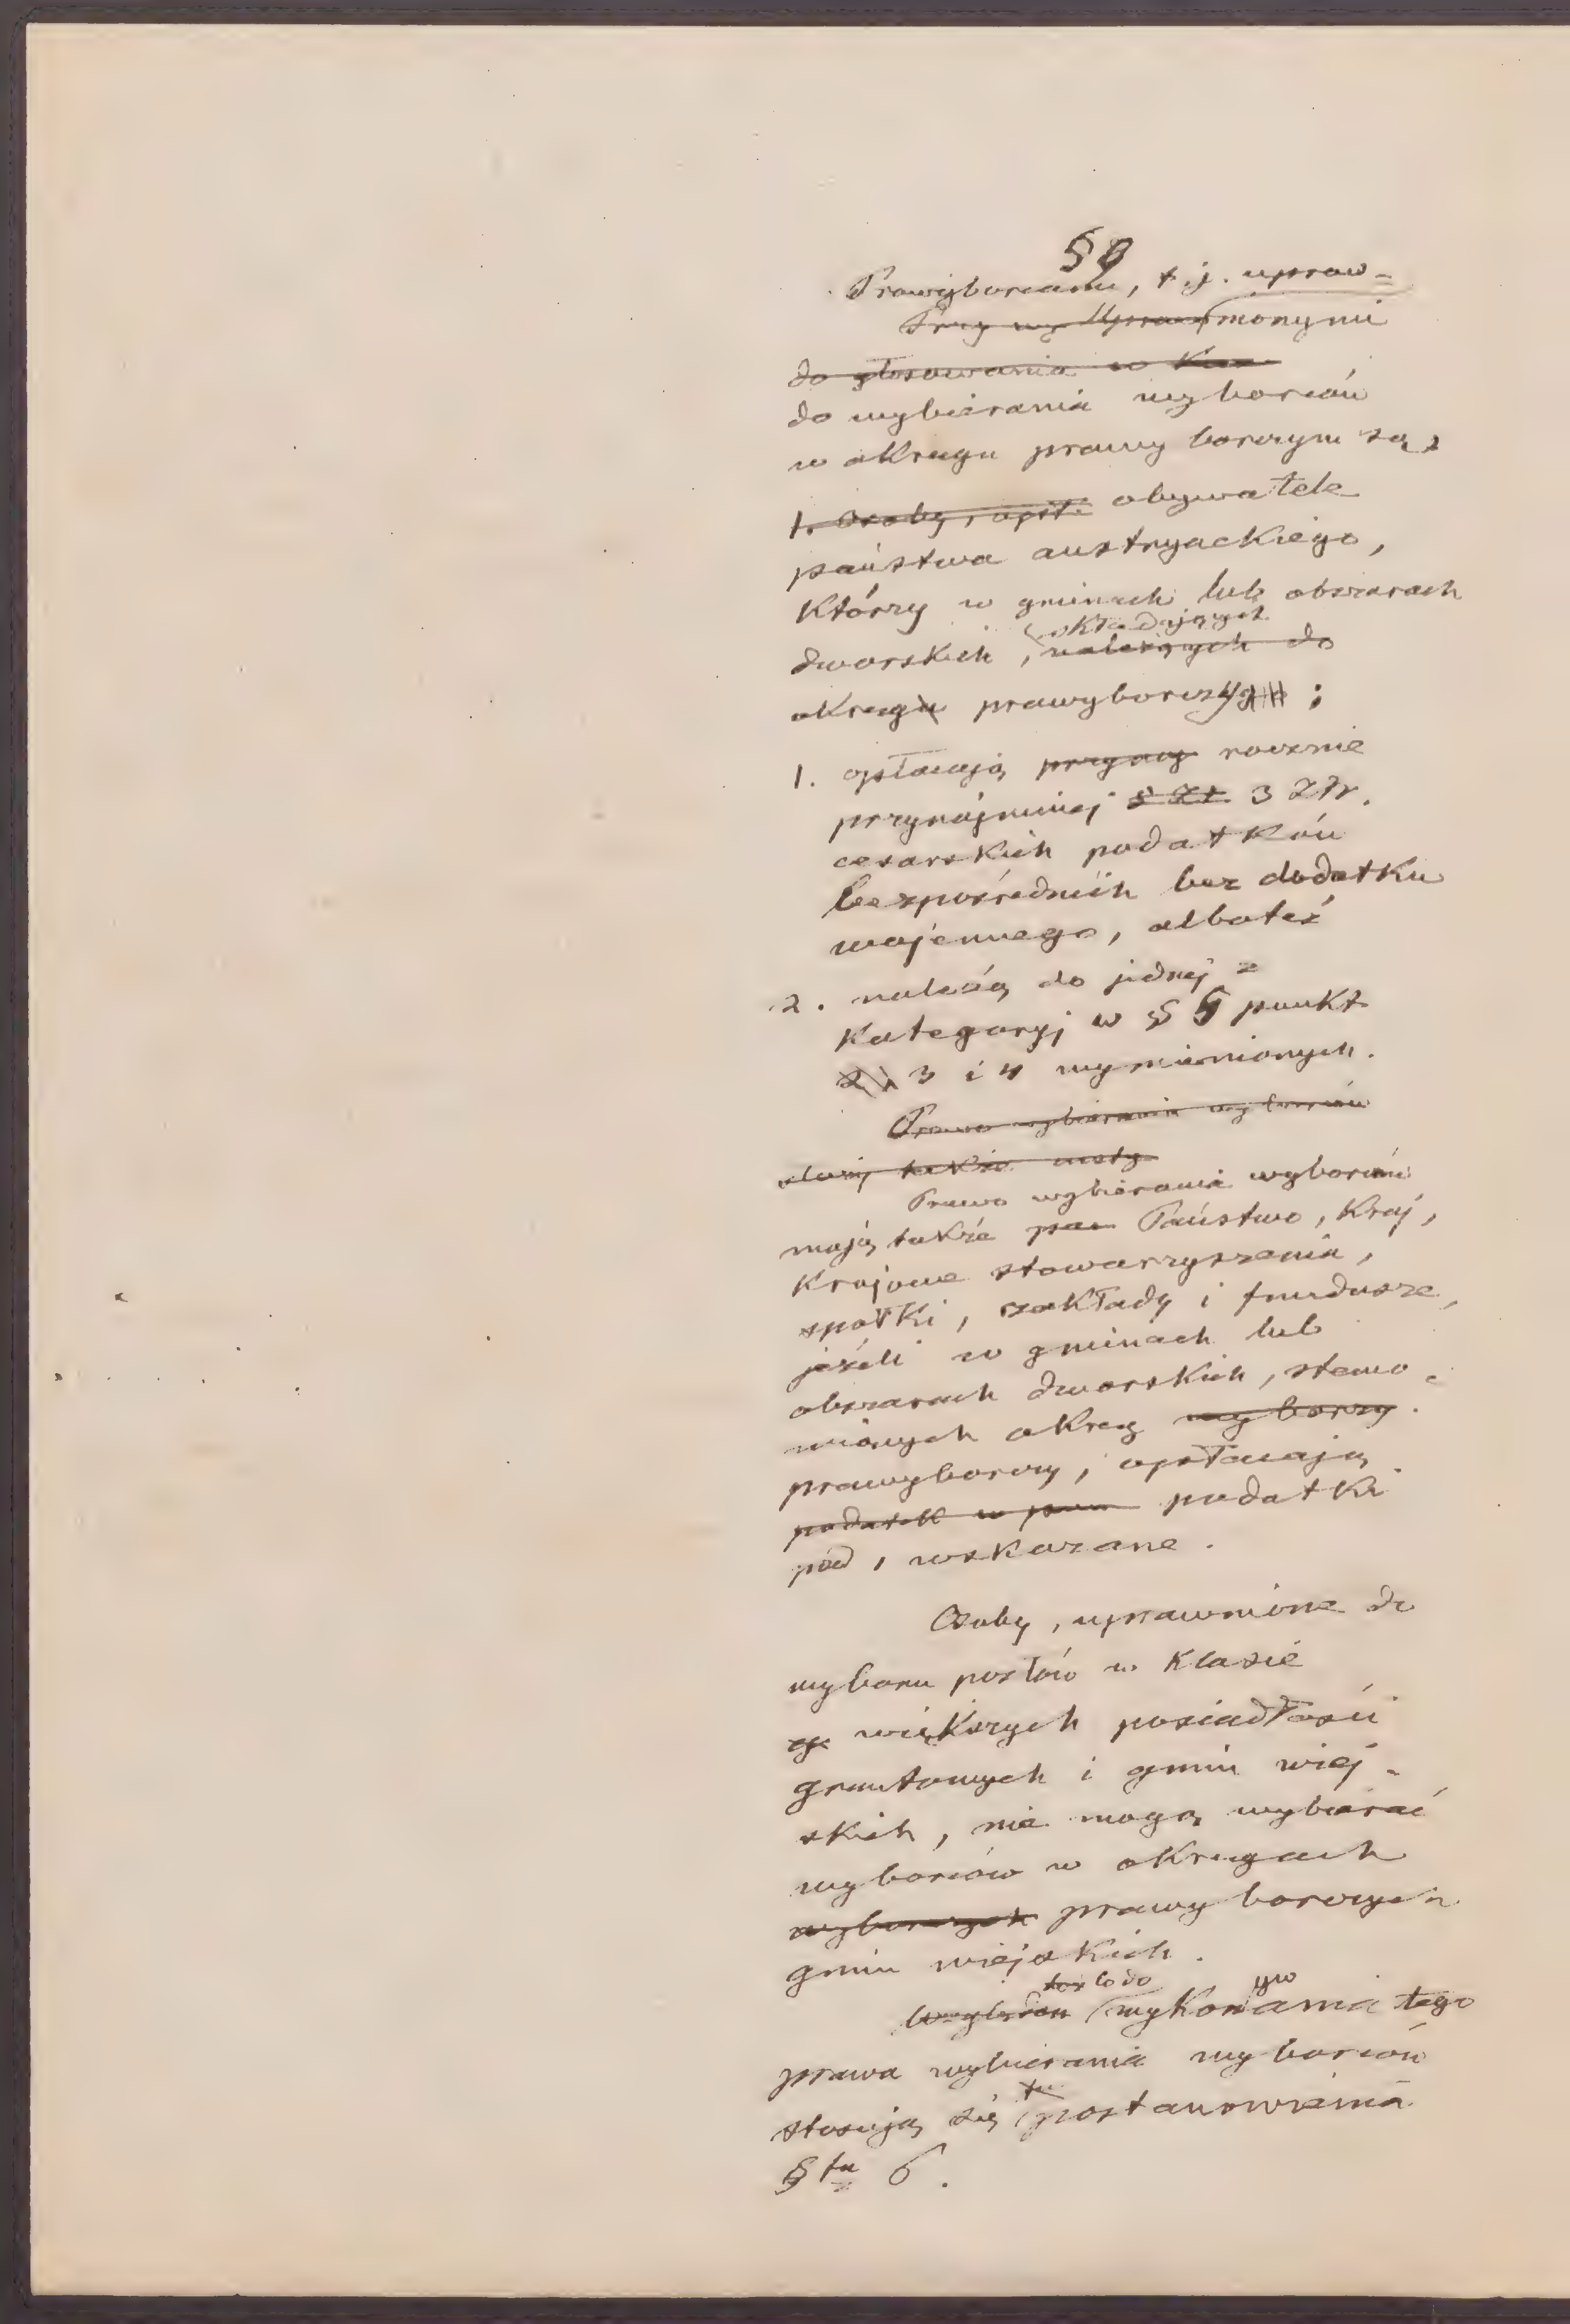 § 8
Prawyborcami, t. j. upraw-
Przy wy Uprawnionymi
do głosowania w Kur
do wybierania wyborców
w okręgu prawyborczym są,
1. Osoby, opła obywatele
państwa austryackiego,
którzy w gminach lub obszarach
składających
dworskich, należących do
okręgu prawyborczy;
1. opłacają przynaj rocznie
przynajmniej 3 Złr.
cesarskich podatków
bezpośrednich bez dodatku
wojennego, albo też
2. należą do jednej z
kategoryj w § punkt
2, 3 i 4 wymienionych.
Prawo wybierania wyborców
służy także
Prawo wybierania wyborców
mają także pan Państwo, Kraj,
Krajowe stowarzyszenia,
spółki, zakłady i fundusze,
jeżeli w gminach lub
obszarach dworskich, stano-
wiących okręg wyborczy
prawyborczy, opłacają
podatek w podatki
pod 1 wskazane.
Osoby, uprawnione do
wyboru posłów w klasie
większych posiadłości
gruntowych i gmin wiej-
skich, nie mogą wybierać
wyborców w okręgach
wyborczych prawyborczych
gmin wiejskich.
co do yw
Względem wykonania tego
prawa wybierania wyborców
stosują się postanowienia
§ fu 6.